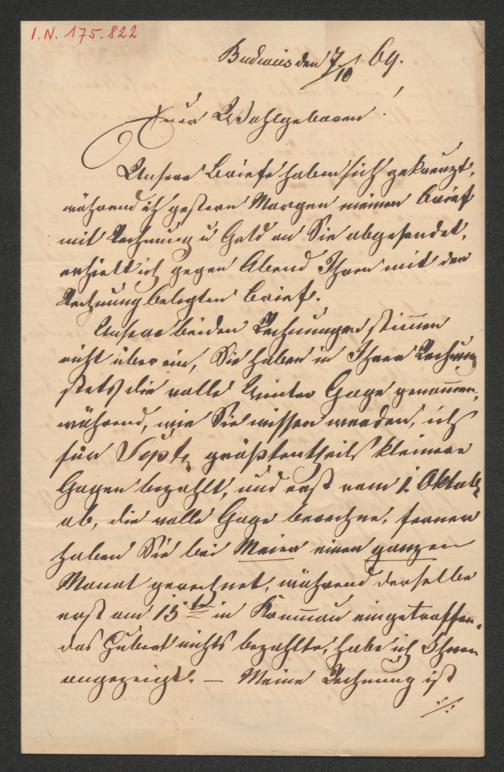 I.N. 175.822
Budweis den 7/10 69.
Euer Wohlgeboren!
Unsere Briefe haben sich gekreuzt,
während ich gestern Morgen meinen Brief
mit Rechnung u Geld an Sie abgesendet,
erhielt ich gegen Abend Ihren mit der
Rechnung belegten Brief.
Unsere beiden Rechnungen stimmen
nicht überein, Sie haben in Ihrer Rechnung
stets die volle Winter Gage genommen,
während, wie Sie wissen werden, ich
für Septb größtentheils kleinere
Gagen bezahlt, und erst vom 1. Oktob
ab, die volle Gage berechne, ferner
haben Sie bei Meier einen ganzen
Monat gerechnet, während derselbe
erst am 15ten in Krumau eingetroffen.
das Hubert nichts bezahlte, habe ich Ihnen
angezeigt. — Meine Rechnung ist